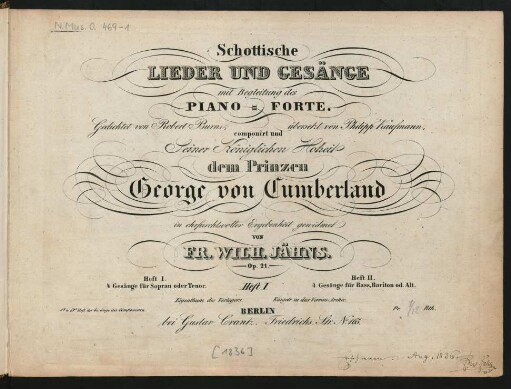 N. Mus. O. 469-1
Schottische
LIEDER UND GESÄNGE
mit Begleitung des
PIANO = FORTE.
Gedichtet von Robert Burns, übersetzt von Philipp Kaufmann,
componirt und
Seiner Königlichen Hoheit
dem Prinzen
George von Cumberland
in ehrfurchtsvoller Ergebenheit gewidmet
VON
FR. WILH. JÄHNS.
Op. 21.
Heft I.
4 Gesänge für Sopran oder Tenor.
Heft I
Heft II.
4 Gesänge für Bass, Bariton od. Alt.
Eigenthum des Verlegers.
BERLIN
Pr. Rth.
bei Gustav Crantz. Friedrichs Str. No.
[1836]
Aug. 1836